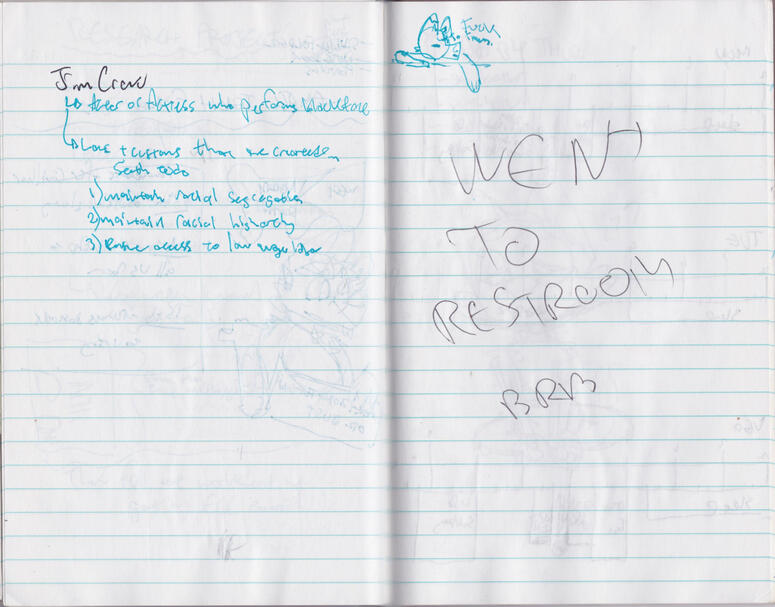 Jim Crow
↳ Actor or Actress who performs blackface
↳ Laws + customs that were created in
South to do
1) maintain racial segregation
2) maintain racial higharchy
3) Ensure access to low wage labor
Fuck
WENT
TO
RESTROOM
BRB